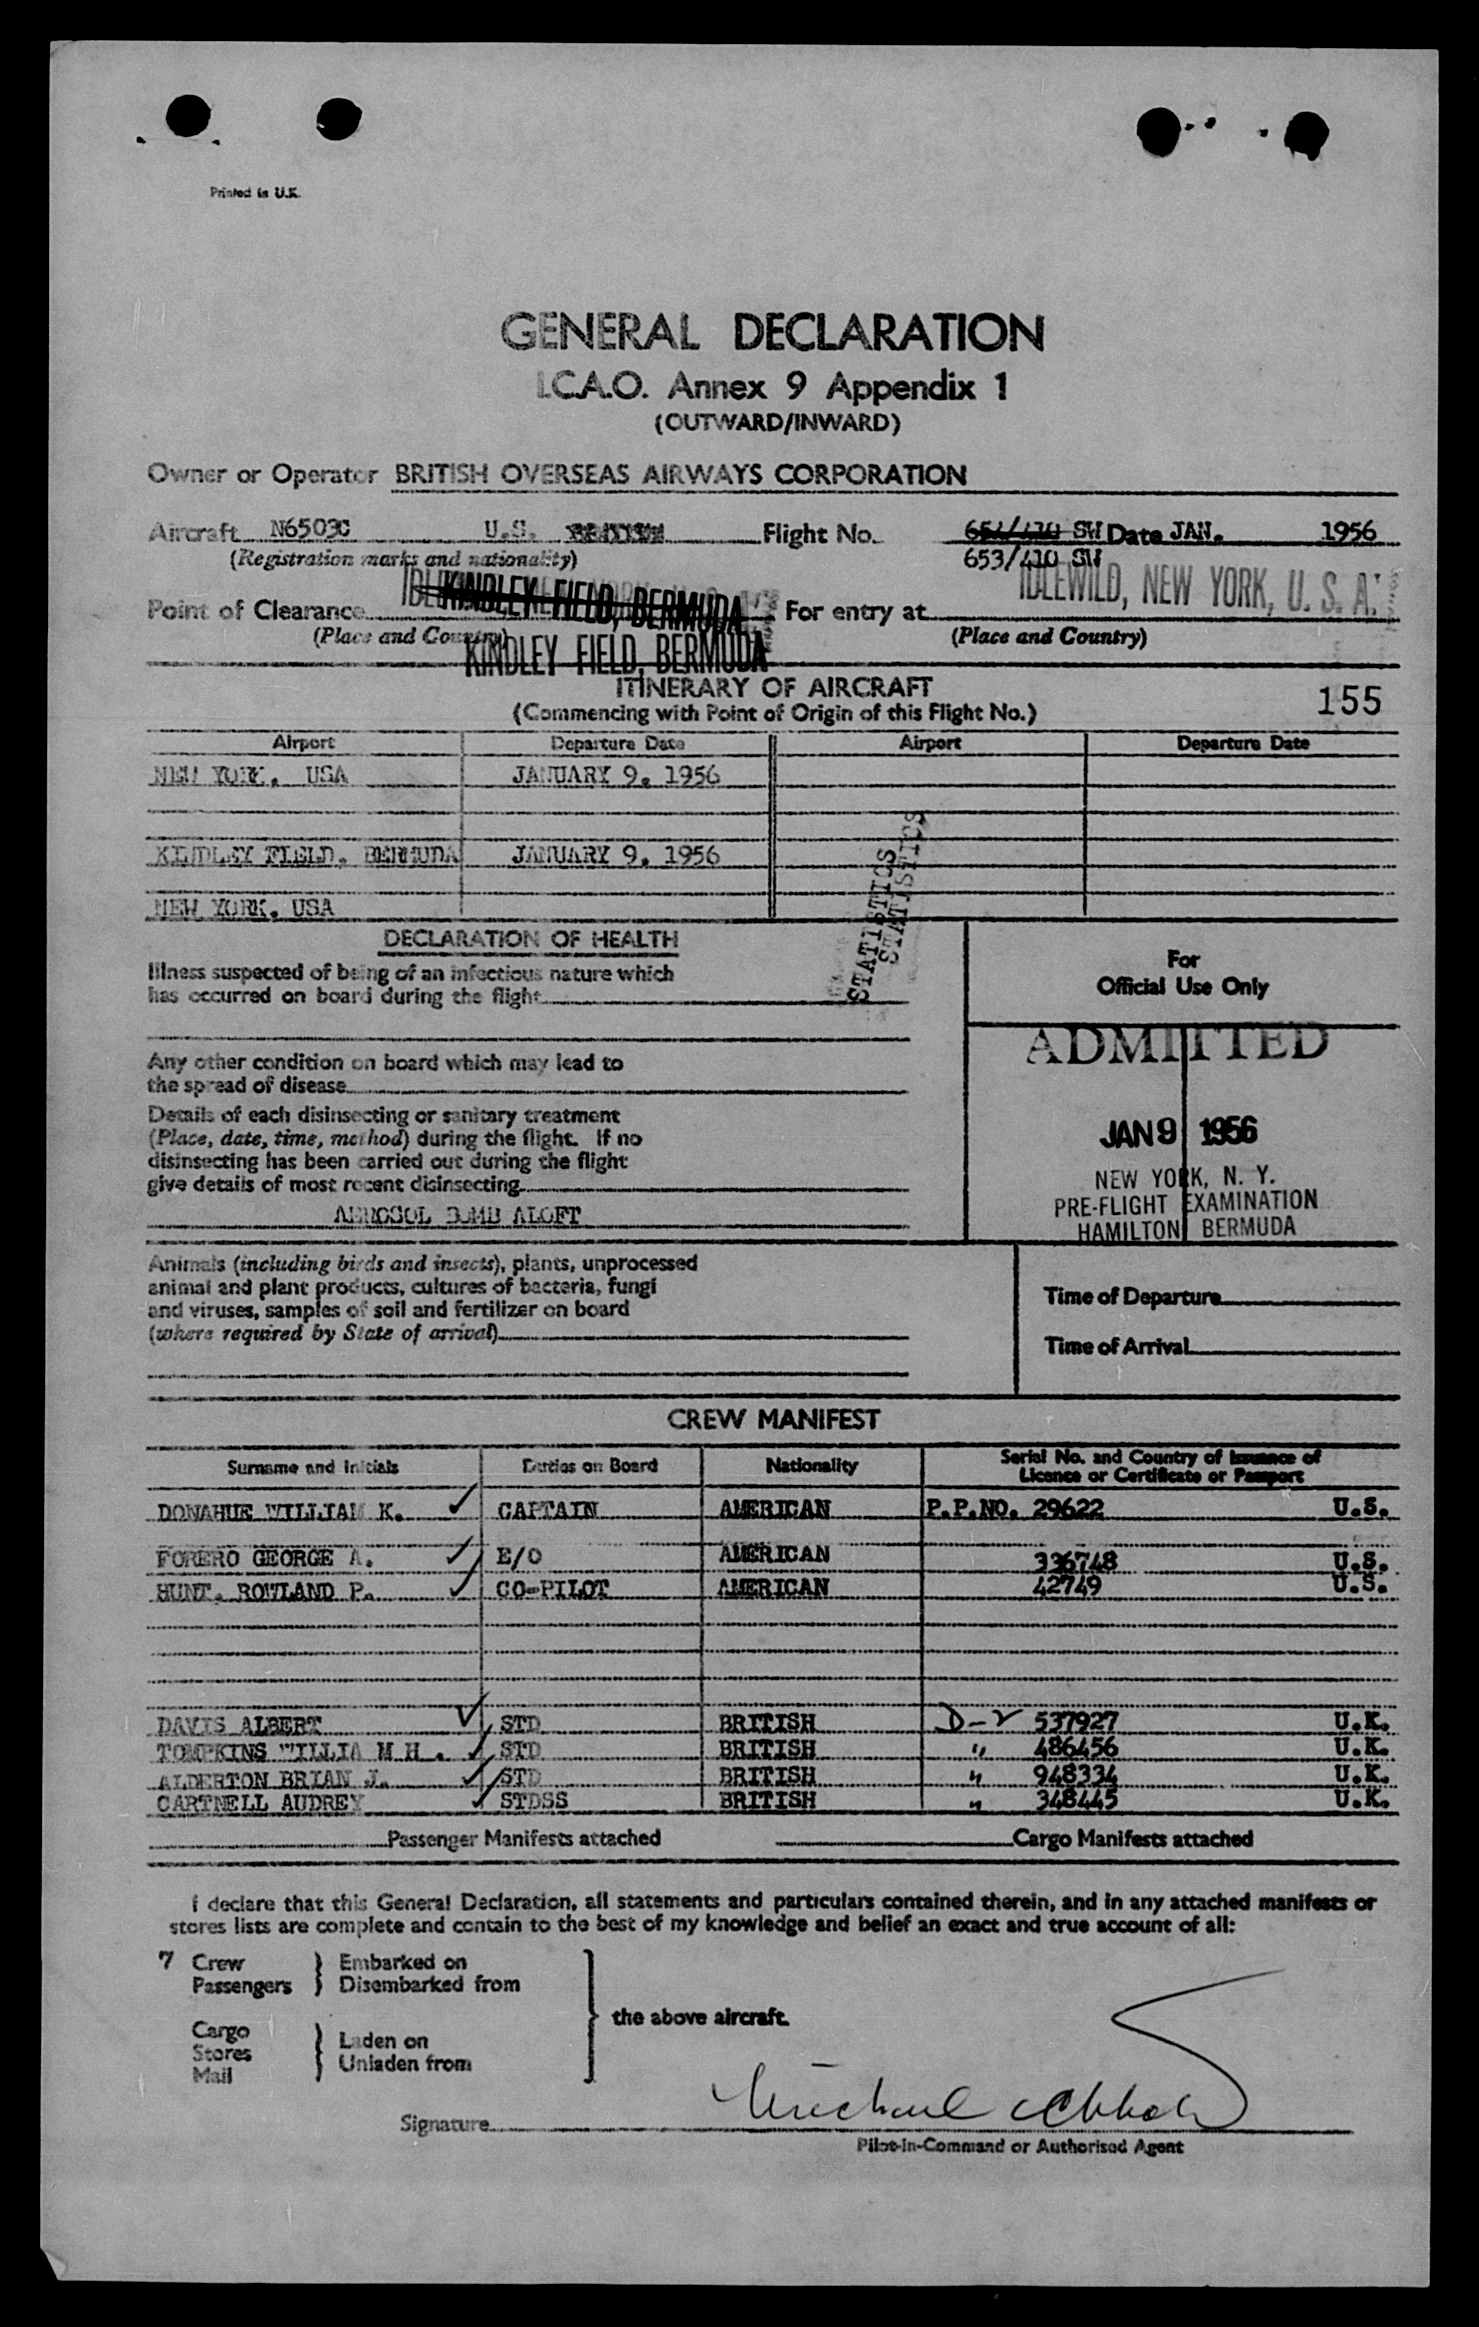 Printed in U.K.
GENERAL DECLARATION
I.C.A.O. Annex 9 Appendix 1
(OUTWARD/INWARD)
Owner or Operator BRITISH OVERSEAS AIRWAYS CORPORATION
Aircraft N6503C U.S. Flight No. 654/410 SW Date JAN. 1956
(Registration marks and nationality) 653/410 SW
Point of Clearance KINDLEY FIELD, BERMUDA For entry at IDLEWILD, NEW YORK, U. S. A.
(Place and Country) KINDLEY FIELD, BERMUDA (Place and Country)
ITINERARY OF AIRCRAFT
(Commencing with Point of Origin of this Flight No.) 155
Airport Departure Date Airport Departure Date
NEW YORK, USA JANUARY 9, 1956
KINDLEY FIELD, BERMUDA JANUARY 9, 1956
NEW YORK, USA
STATISTICS
STATISTICS
DECLARATION OF HEALTH
Illness suspected of being of an infectious nature which
has occurred on board during the flight
Any other condition on board which may lead to
the spread of disease
Details of each disinsecting or sanitary treatment
(Place, date, time, method) during the flight. If no
disinsecting has been carried out during the flight
give details of most recent disinsecting
AEROSOL BOMB ALOFT
For
Official Use Only
ADMITTED
JAN 9 1956
NEW YORK, N. Y.
PRE-FLIGHT EXAMINATION
HAMILTON BERMUDA
Animals (including birds and insects), plants, unprocessed
animal and plant products, cultures of bacteria, fungi
and viruses, samples of soil and fertilizer on board
(where required by State of arrival)
Time of Departure
Time of Arrival
CREW MANIFEST
Surname and Initials Duties on Board Nationality Serial No. and Country of Issuance of
Licence or Certificate or Passport
DONAHUE WILLIAM K. ✓ CAPTAIN AMERICAN P.P.NO. 29622 U.S.
FORERO GEORGE A. ✓ E/O AMERICAN 336748 U.S.
HUNT, ROWLAND P. ✓ CO-PILOT AMERICAN 42749 U.S.
DAVIS ALBERT ✓ STD BRITISH D-2 537927 U.K.
TOMPKINS WILLIAM H. ✓ STD BRITISH " 486456 U.K.
ALDERTON BRIAN J. ✓ STD BRITISH " 948334 U.K.
CARTNELL AUDREY ✓ STDSS BRITISH " 348445 U.K.
Passenger Manifests attached Cargo Manifests attached
I declare that this General Declaration, all statements and particulars contained therein, and in any attached manifests or
stores lists are complete and contain to the best of my knowledge and belief an exact and true account of all:
7 Crew Embarked on
Passengers Disembarked from
the above aircraft.
Cargo
Stores Laden on
Mail Unladen from
Signature
Pilot-in-Command or Authorised Agent